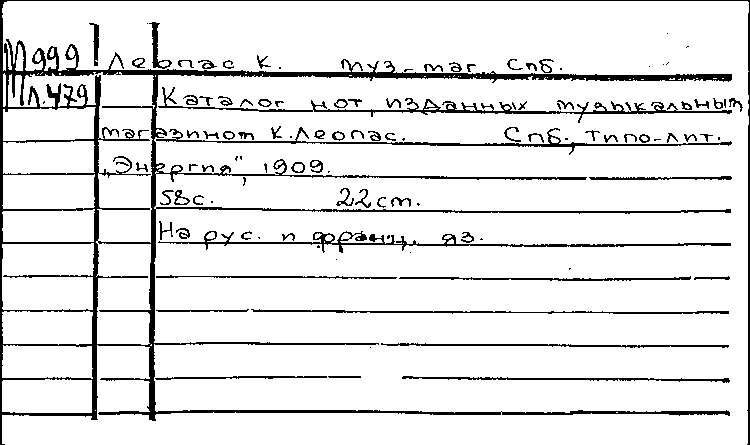 М999 Леопас К. муз-маг., Спб.
Л.479 Каталог нот, изданных музыкальным
магазином К.Леопас. Спб., типо-лит.
„Энергия", 1909.
58с. 22см.
На рус. и франц. яз.